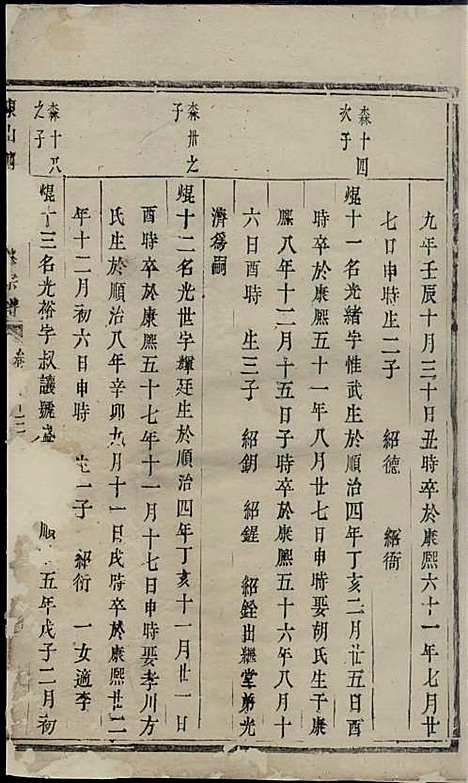 九年壬辰十月三十日丑時卒於康熙六十一年七月廿
七日申時生二子　紹德　紹衙
森十四次子
焜十一名光緒字惟武生於順治四年丁亥二月廿五日酉
時卒於康熙五十一年八月廿七日申時娶胡氏生于康
熙八年十二月十五日子時卒於康熙五十六年八月十
六日酉時　生三子　紹鈅　紹鋥　紹銓出繼堂弟光
濟為嗣
森卅之子
焜十二名光世字輝廷生於順治四年丁亥十一月廿一日
酉時卒於康熙五十七年十一月十七日申時娶李川方
氏生於順治八年辛卯九月十一日戌時卒於康熙廿二
年十二月初六日申時　生一子　紹衍　一女適李
森十八之子
焜十三名光裕字叔讓號　順　五年戊子二月初
宗譜　卷